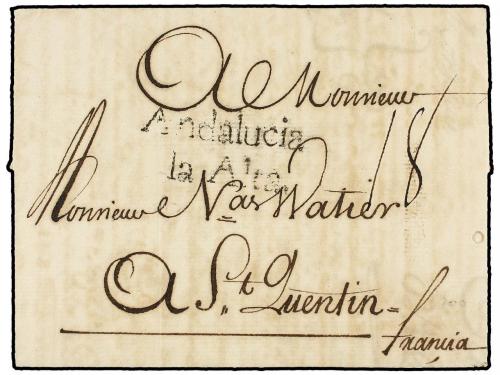 A Monsieur
Andalucia
la Alta
18
Monsieur Nas Watier
A St Quentin =
francia